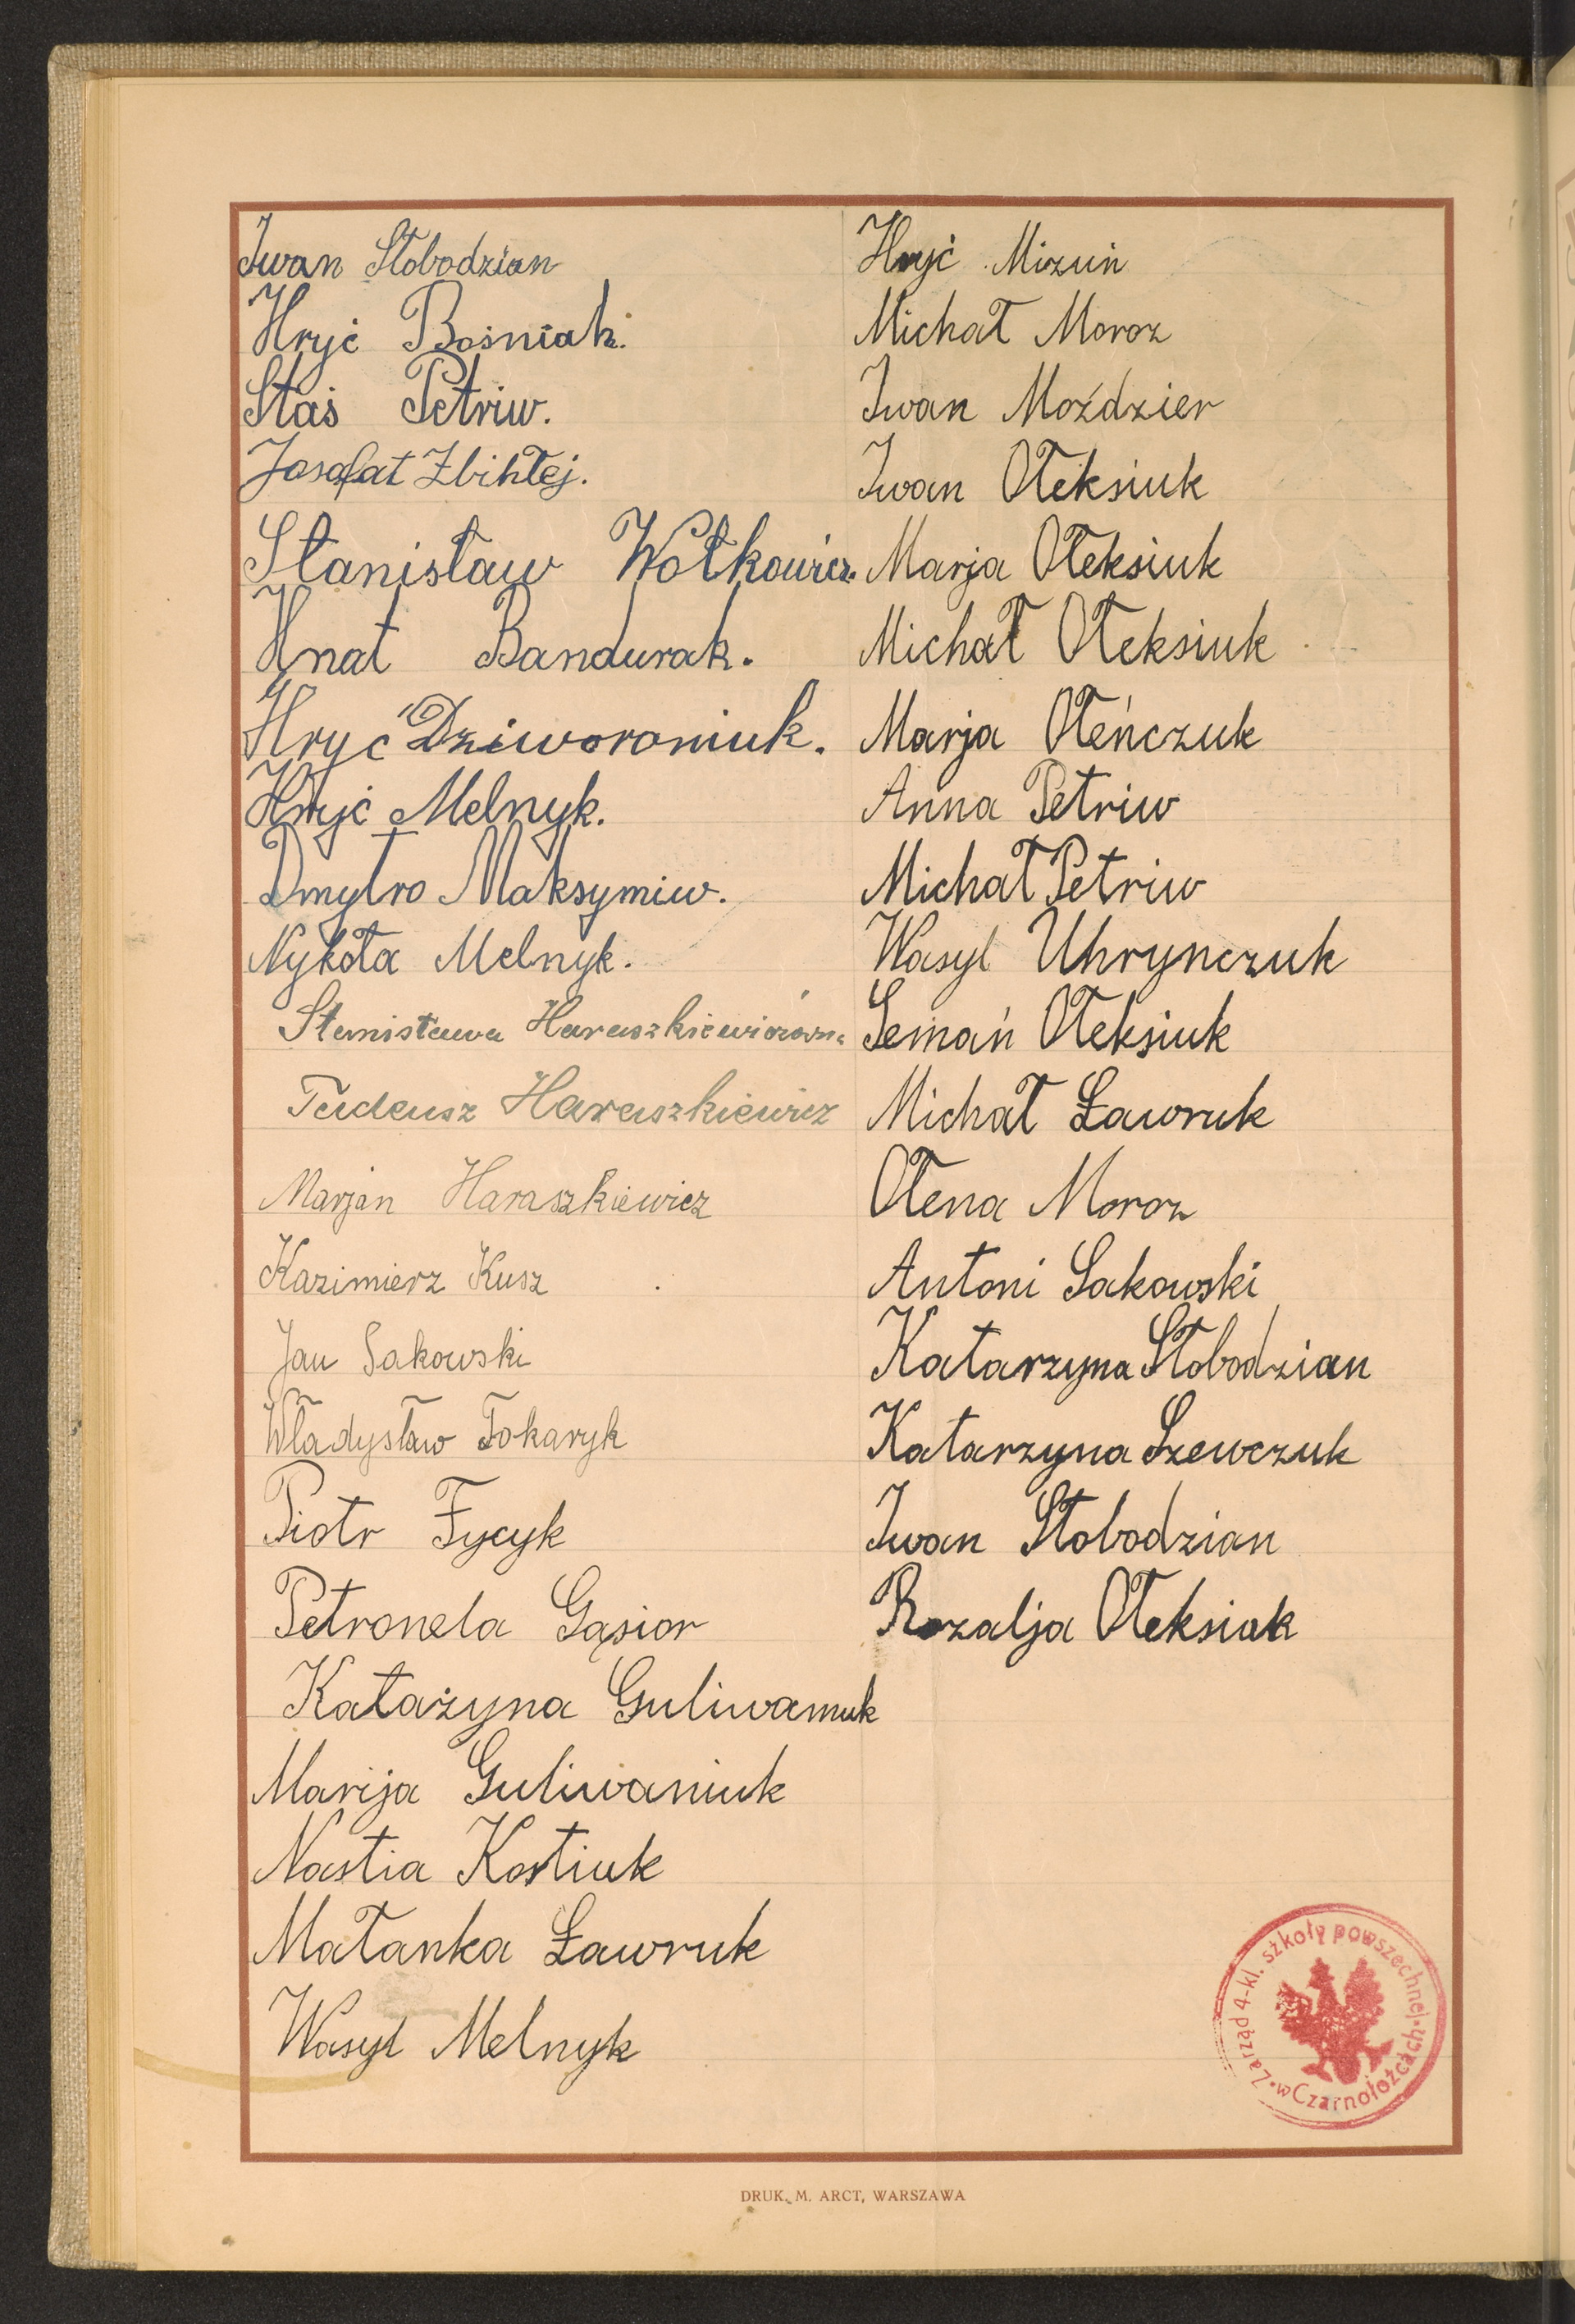 Iwan Słobodzian
Hryć Bośniak.
Staś Petriw.
Josafat Zbihłej.
Stanisław Wołkowicz.
Hnat Bandurak.
Hryć Dziworoniuk.
Hryć Melnyk.
Dmytro Maksymiw.
Nykoła Melnyk.
Stanisława Haraszkiewiczówna
Tadeusz Haraszkiewicz
Marjan Haraszkiewicz
Kazimierz Kusz
Jan Sakowski
Władysław Tokaryk
Piotr Fycyk
Petronela Gąsior
Katażyna Guliwaniuk
Marija Guliwaniuk
Nastia Kostiuk
Małanka Ławruk
Wasyl Melnyk
Hryć Mizuń
Michał Moroz
Iwan Moździer
Iwan Ołeksiuk
Marja Ołeksiuk
Michał Ołeksiuk
Marja Ołeńczuk
Anna Petriw
Michał Petriw
Wasyl Uhrynczuk
Semań Ołeksiuk
Michał Ławruk
Ołena Moroz
Antoni Sakowski
Katarzyna Słobodzian
Katarzyna Szewczuk
Iwan Słobodzian
Rozalja Ołeksiak
Zarząd 4-kl. szkoły powszechnej • w Czarnołoźcach •
DRUK. M. ARCT, WARSZAWA